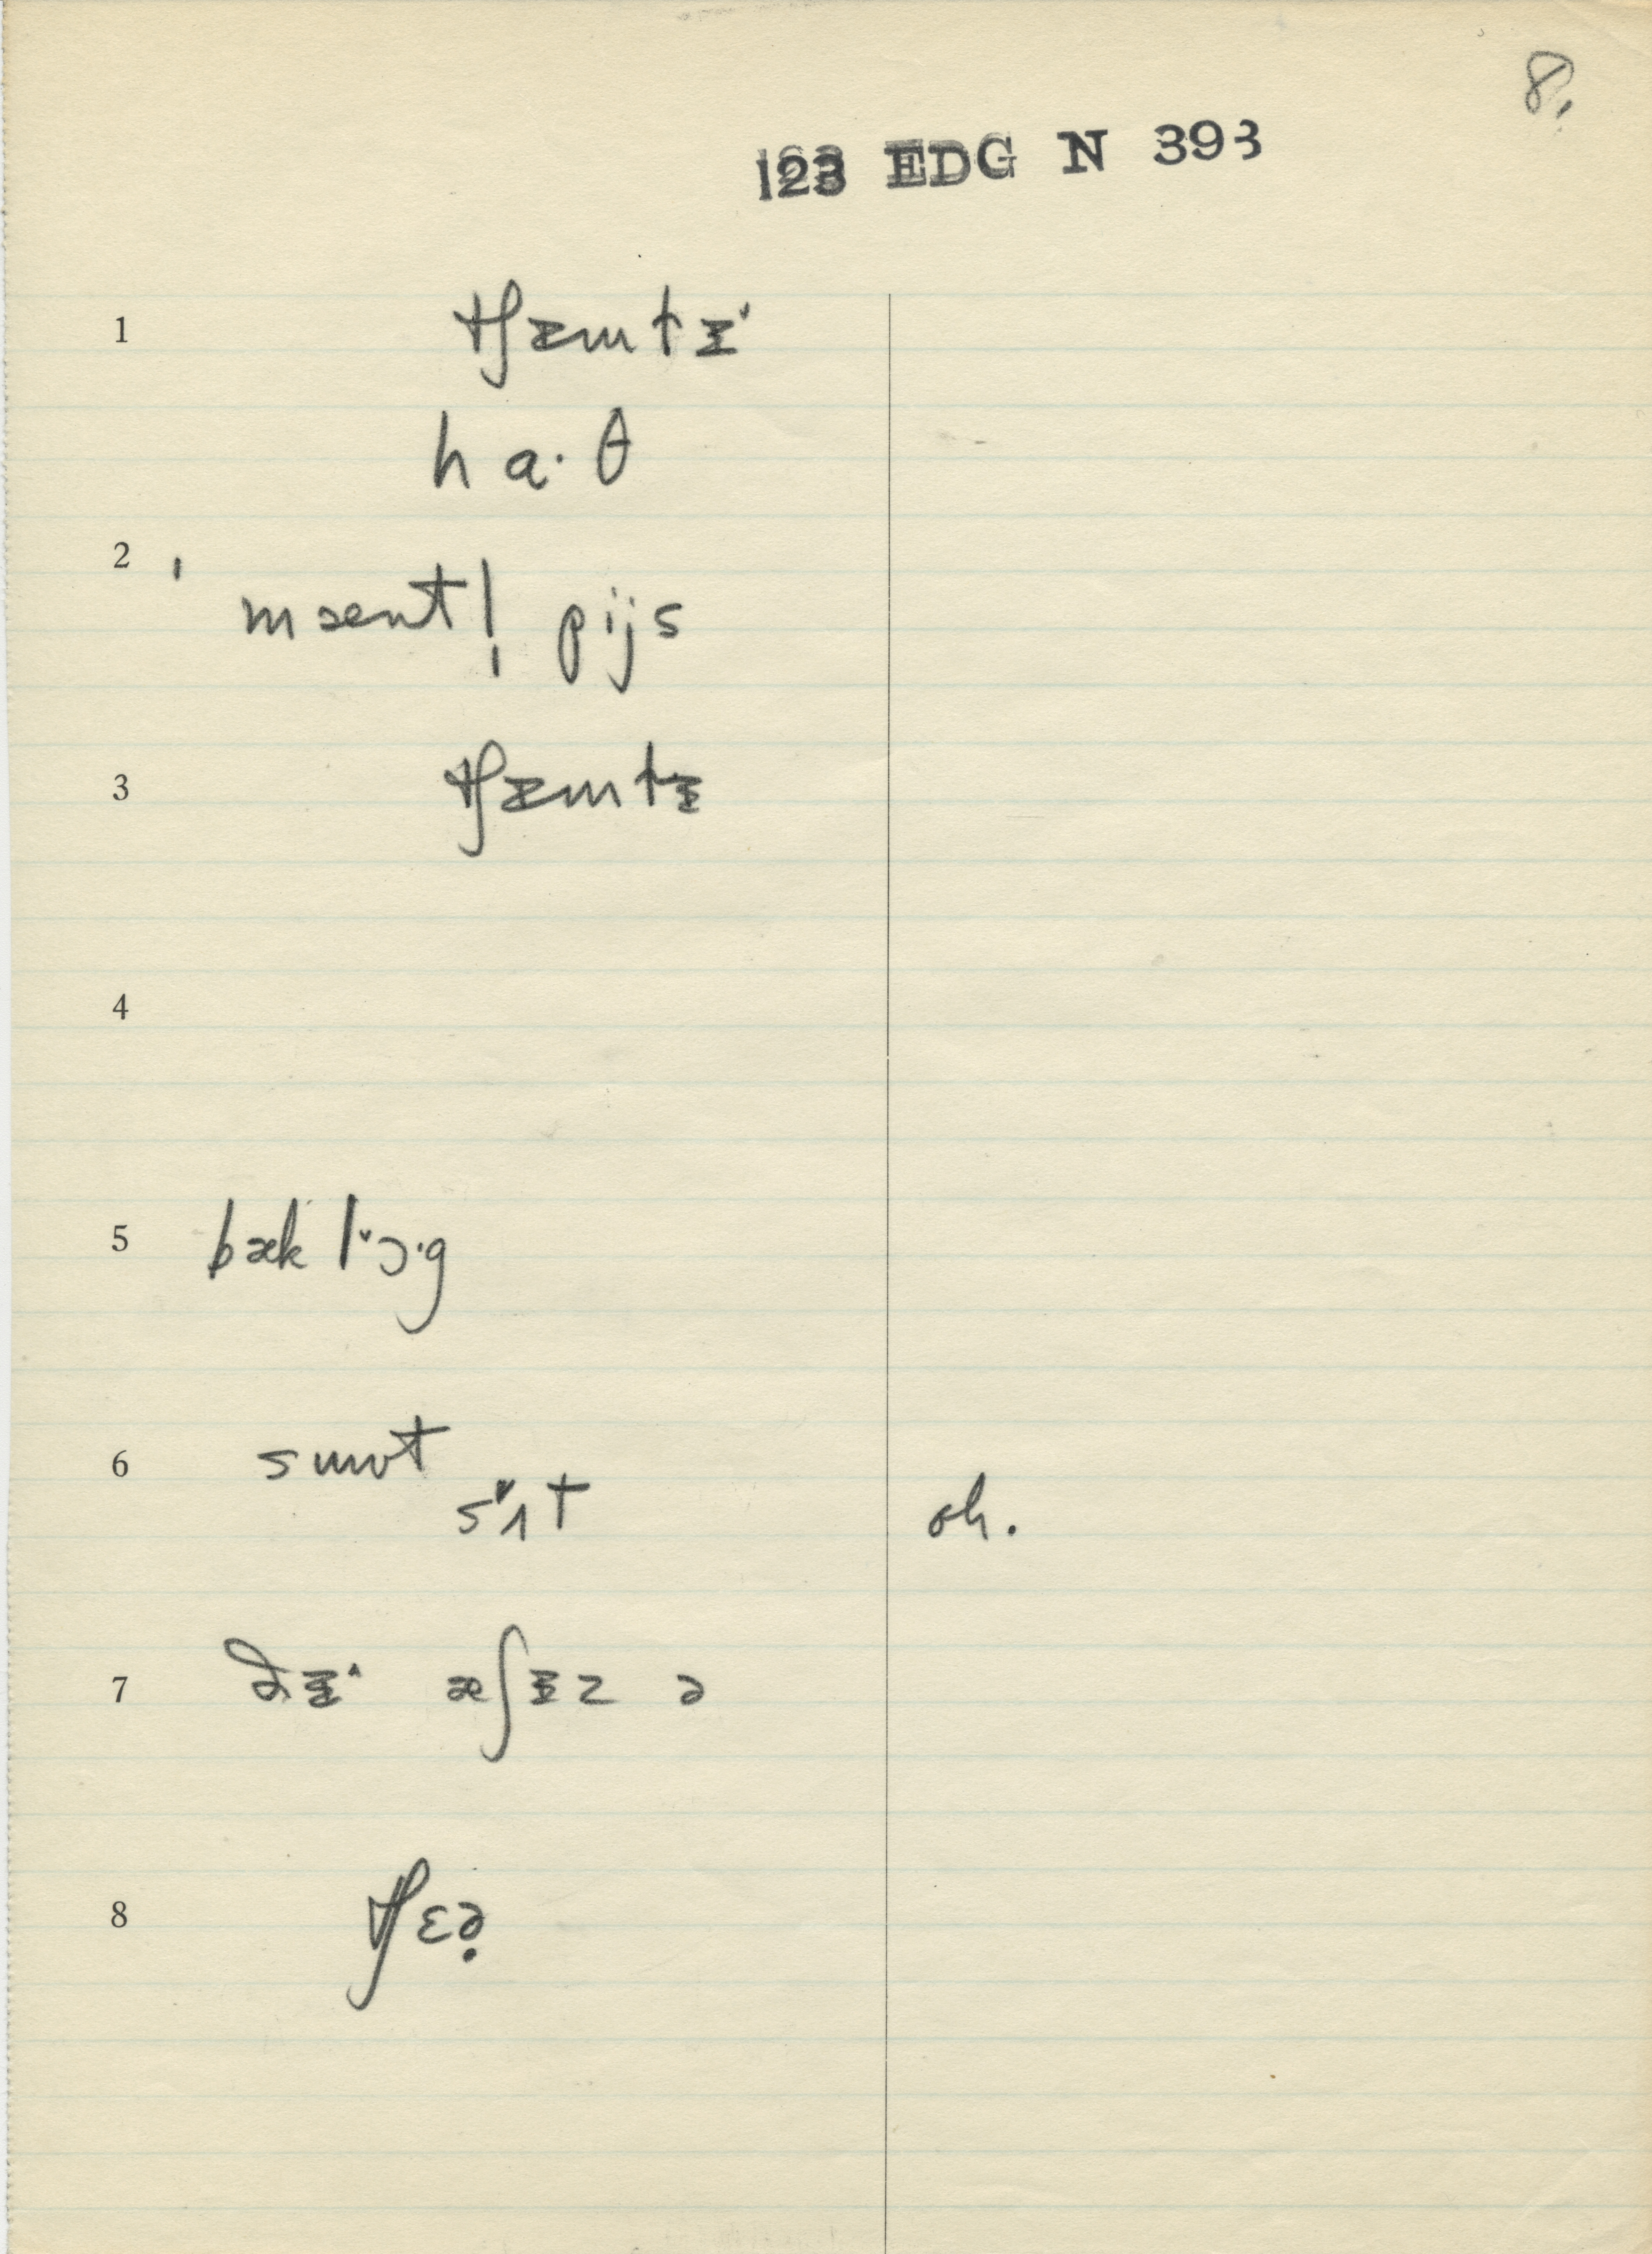 8.
123 EDG N 393
1 tʃɪmtɪ˅
ha·θ
2 ˈmæntḷ pijs
3 tʃɪmtɪ
4
5 bæk l˅ɔ·g
6 smʊt
s˅ʌt oh.
7 ðɪ˄ æʃɪz ə
8 tʃɛə̣